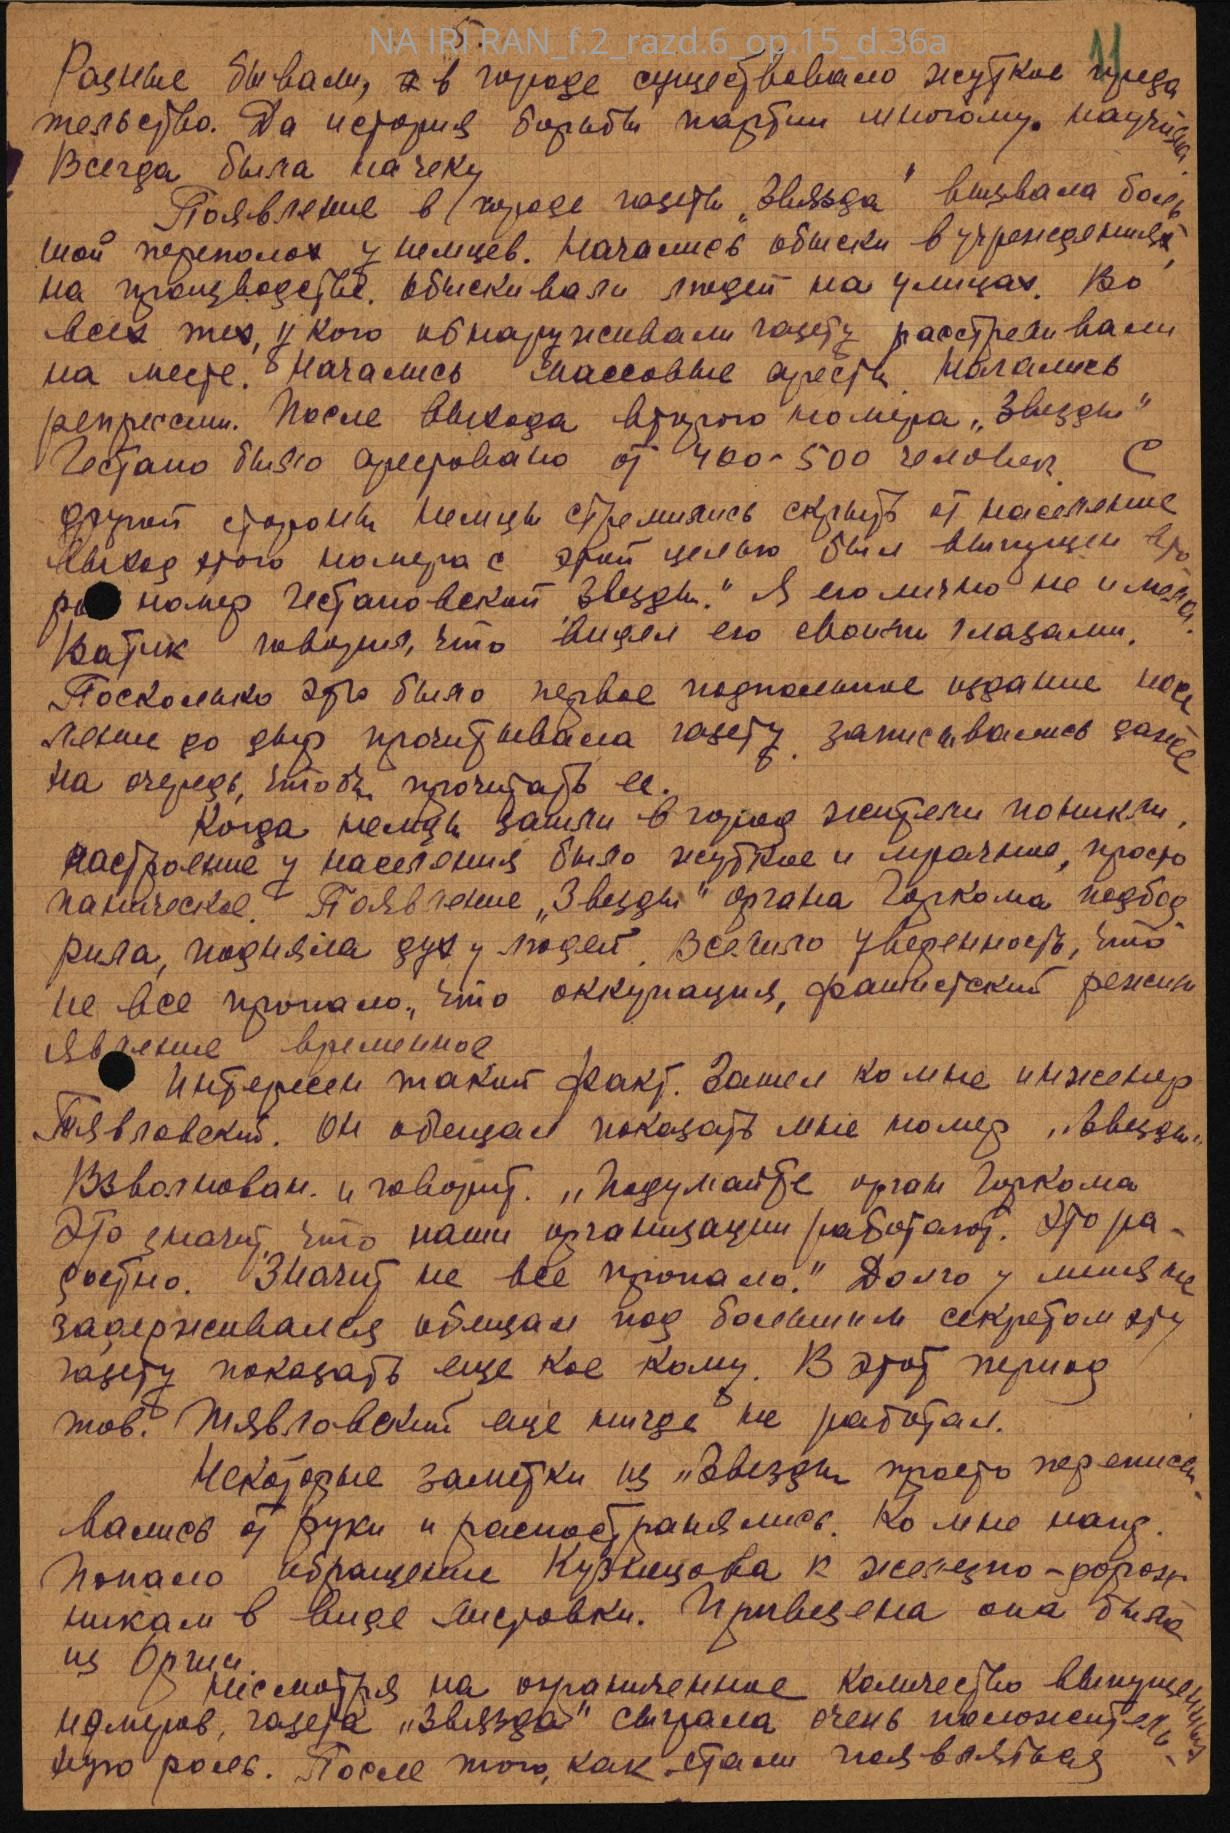 5.
NA IRI RAN_f.2_razd.6_op.15_d.36a
11
Разные бывали, а в городе существовало жуткое преда
тельство. Да история борьбы партии многому научила.
Всегда была на чеку
Появление в городе газеты „Звязда" вызвала боль
шой переполох у немцев. Начались обыски в учреждениях,
на производстве. Обыскивали людей на улицах. Во
всех тех, у кого обнаруживали газету расстреливали
на месте. Начались массовые аресты. Начались
репрессии. После выхода второго номера „Звезды"
Гестапо было арестовано от 400-500 человек. С
другой стороны немцы стремились скрыть от население
выход этого номера с этой целью был выпущен вто
рой номер Гестаповской Звезды." Я его лично не имела.
Ватик говорил, что видел его своими глазами.
Поскольку это было первое подпольное издание насе
ление до дыр прочитывала газету. Записывались даже
на очередь, чтобы прочитать ее.
Когда немцы зашли в город жители поникли,
настроение у населения было жуткое и мрачное, просто
паническое. Появление „Звезды" органа Горкома подбод
рила, подняла дух у людей. Вселило уверенность, что
не все пропало, что оккупация, фашистский режим
явление временное
Интересен такой факт. Зашел ко мне инженер
Тявловский. Он обещал показать мне номер „Звезды"
Взволнован. и говорит. „Подумайте орган Горкома
Это значит, что наши организации работают. Это ра-
достно. Значит не все пропало." Долго у меня не
задерживался обещал под большим секретом эту
газету показать еще кое кому. В этот период
тов. Тявловский еще нигде не работал.
Некоторые заметки из „Звезды просто переписы-
вались от руки и распостранялись. Ко мне напр.
попало обращение Кузнецова к железно-дорож
никам в виде листовки. Привезена она была
из Орши.
Несмотря на ограниченное количество выпущенных
номеров, газета „Звязда" сыграла очень положитель-
ную роль. После того, как стали появляться